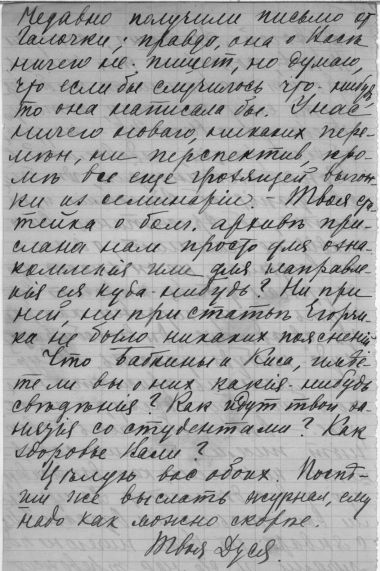 Недавно получили письмо от
Галочки; правда, она о Васъ
ничего не пишетъ, но думаю,
что если бы случилось что-нибудь
то она написала бы. У насъ
ничего новаго, никакихъ пере-
мѣн, ни перспектив, кро-
мѣ все еще грозящей выгон-
ки из семинаріи. - Твоя ста-
тейка о болг. архивѣ при-
слана нам просто для озна-
комленія или для направле-
нія ея куда-нибудь? Ни при
ней, ни при статьѣ Егорыч-
ка не было никаких пояснений
Что Бабкины и Киса, имѣе-
те ли вы о них какія-нибудь
свѣдѣнія? Как идут твои за-
нятія со студентами? Как
здоровье Вали?
Цѣлую вас обоих. Поспѣ-
ши же выслать журнал, ему
надо как можно скорѣе.
Твоя Дуся.